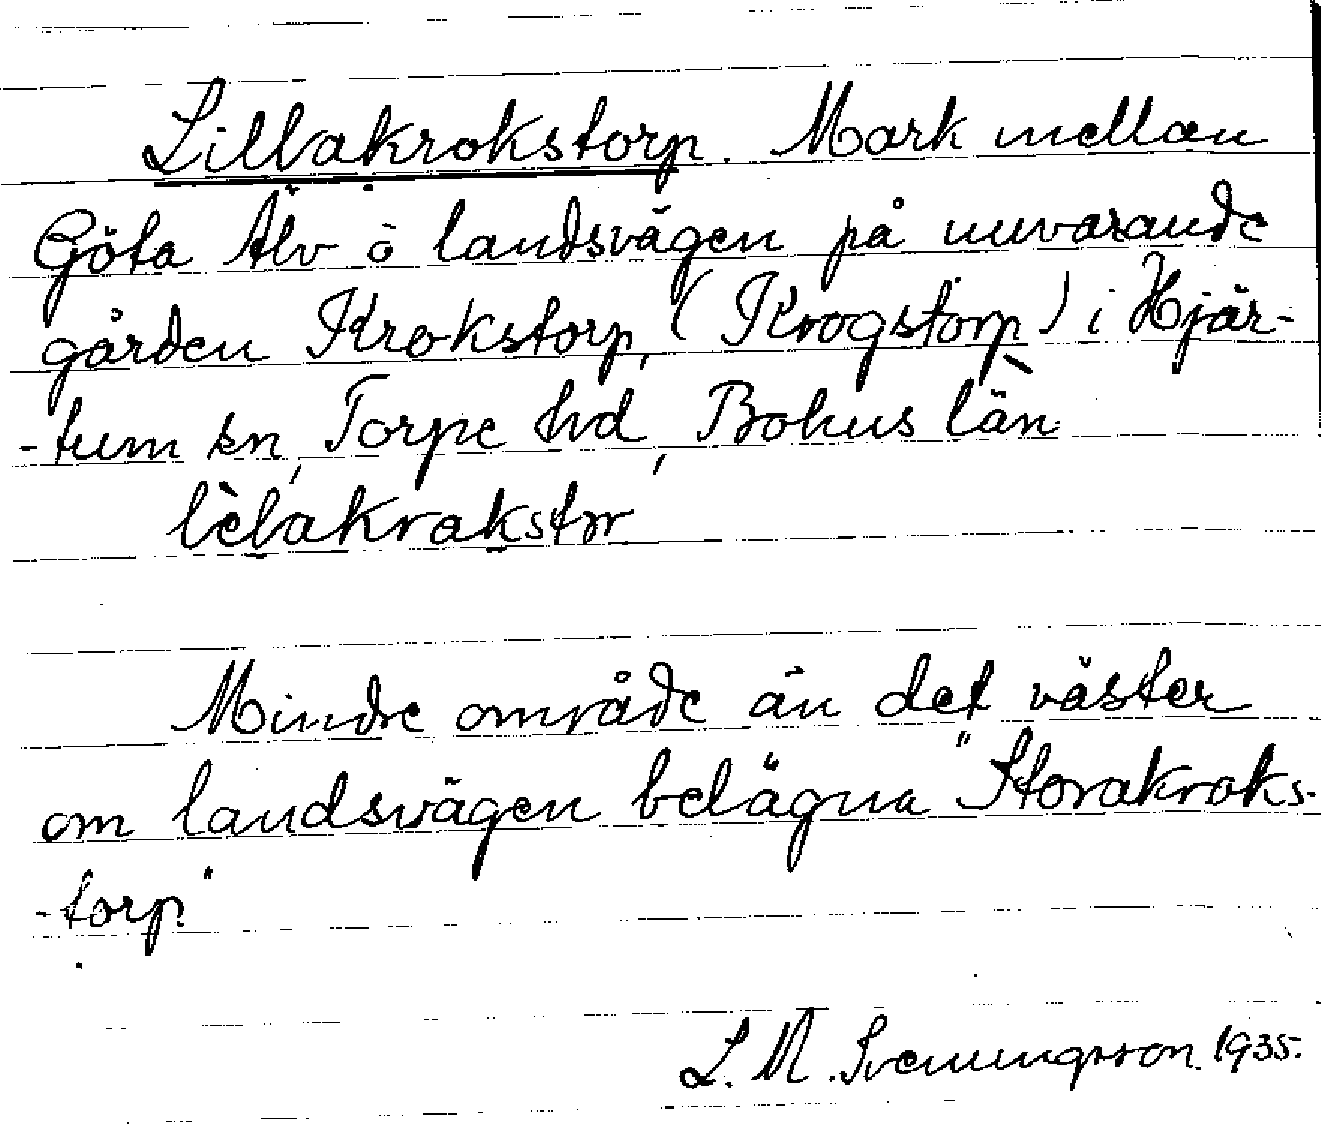 Lillakrokstorp. Mark mellan
Göta Älv o landsvägen på nuvarande
gården Krokstorp, (Krogstorp) i Hjär-
-tum sn, Torpe hd, Bohus län
lèlakrakstɷr
Mindre område än det väster
om landsvägen belägna "Storakroks-
-torp."
L. M. Svenungsson. 1935.